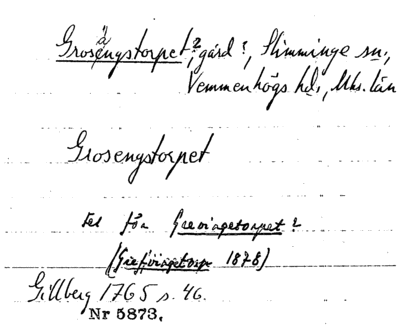 Grosängstorpet?, gård?, Slimminge sn.,
Vemmenhögs hd., Mhs. län
Grosengstorpet
fel för Grevingetorpet?
1878)
Gillberg 1765 s. 46.
Nr 5873.